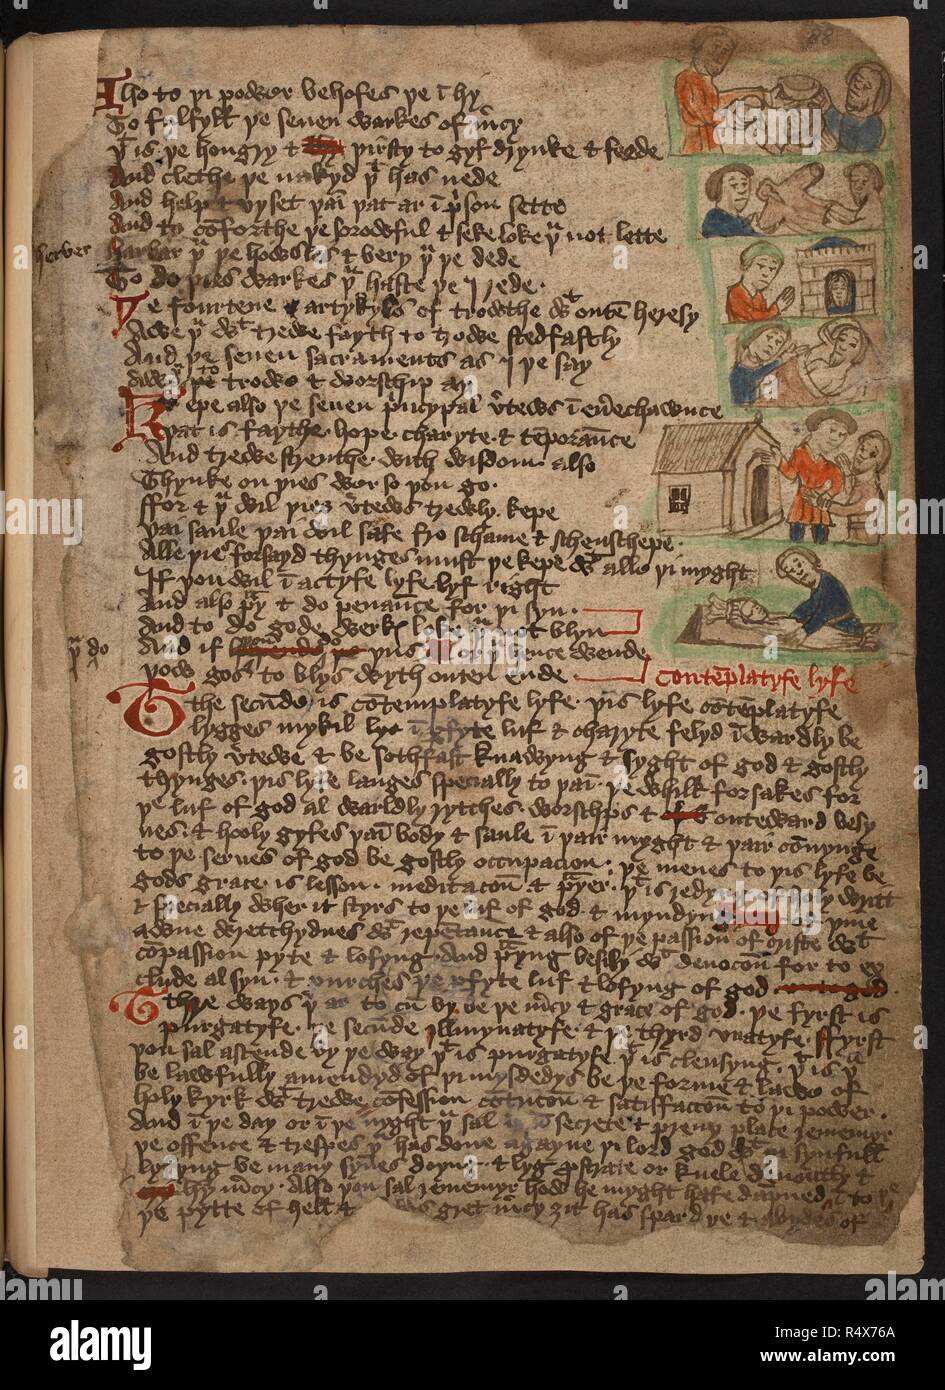 88
Also to þi power behofes þe i hy
To fulfyll þe seuen warkes of mcy
þt is þe hongry & þirsty to gyf drynke & feede
And clethe þe nakyd þt has nede
And help & vyset þam þat ar i pson sette
And to coforthe þe sorowful & seke loke þu not lette
herber
Harbar þu þe howsles & bery þu þe dede
To do þies warkes þu haste þe I rede
Þe fourtene artykyls of trowthe wt outen heresy
Awe þu wt trewe fayth to trowe stedfastly
And þe seuen sacraments as I þe say
Awe þu to trowe & worschip ay
Kepe also þe seuen pncypal vtews i euechawnce
þat is faythe hope charyte & teporance
And trewe strenthe with wisdom also
Thynke on þies wor so þou go
ffor & þu wil þies vtews trewly kepe
þai saule þai wil safe fro schame & schenschepe
Alle þie forsayd thynges must þe kepe wt alle þi myght
If þou wil i actyfe lyfe lyf right
And also pray & do penance for þi syn
And to do gode werk loke þu not blyn
þu do
And if þus or þu hence wende
þow gos to blys wyth outen ende
Contemplatyfe lyfe
The secude is cotemplatyfe lyfe þis lyfe cotemplatyfe
lygges mykil i luf & charyte felyd iwardly be
gostly vtewe & be sothfast knawyng & syght of god & gostly
thynges þis lyfe langes specially to þam þe whilk forsakes for
þe luf of god al warldly rytches worschips & outeward besy
nes & hooly gyfes þam body & saule i þair myght & þair conynge
to þe serues of god be gostly occupacion þe menes to þis lyfe be
gods grace is lesson meditacon & prayer þt is redyng of holy writt
& specially wher it styrs to þe luf of god & myndyng of þine
awne wretchydnes wt repentance & also of þe passion of criste wt
copassion pyte & lofyng And prayng besily wt deuocon for to ex
clude al syn & purches þe pfyte luf & lofyng of god
Thre ways þt ar to cu by be þe mcy & grace of god þe fyrst is
purgatyfe þe secude illumynatyfe & þe thyrd vnatyfe ffyrst
þou sal ascende by þe way þt is purgatyfe þt is clensyng þt is þu
be lawfully amendyd of þi mysdedys be þe forme & lawe of
holy kyrk wt trewe cofession cotricon & satisfaccon to þi power
And i þe day or i þe nyght þu sal i secrete & preuy place rememyr
þe offence & trespes þu has done agayne þi lord god wt þi synfull
lyfyng be many synes doyng & lyg pstrate or knele deuoutly &
hy mcy Also þou sal rememyr how he myght hafe dapned þe to
þe pytte of hell & his gret mcy zit has spard þe & abydes of
alamy
Image ID: R4X76A
www.alamy.com